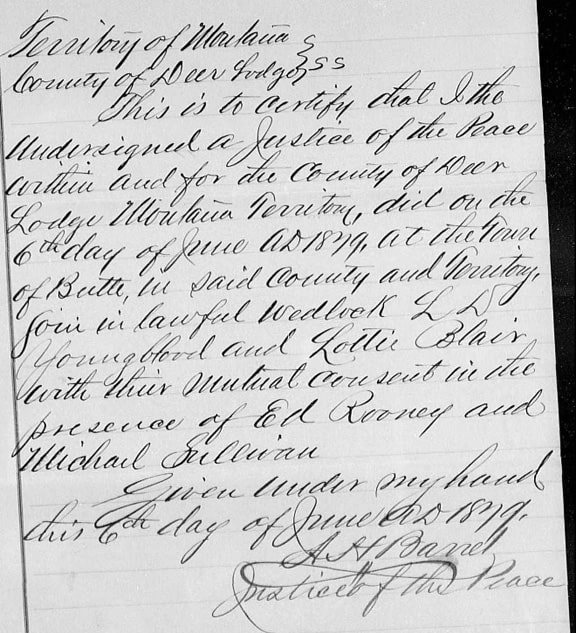 Territory of Montana }
County of Deer Lodge } SS
This is to certify that I the
Undersigned a Justice of the Peace
within and for the County of Deer
Lodge Montana Territory, did on the
6th day of June AD 1879, at the Town
of Butte, in said County and Territory,
join in lawful Wedlock L D
Youngblood and Lottie Blair
with their mutual consent in the
presence of Ed Rooney and
Michael Sullivan
Given under my hand
this 6th day of June AD 1879.
A H Barret
Justice of the Peace